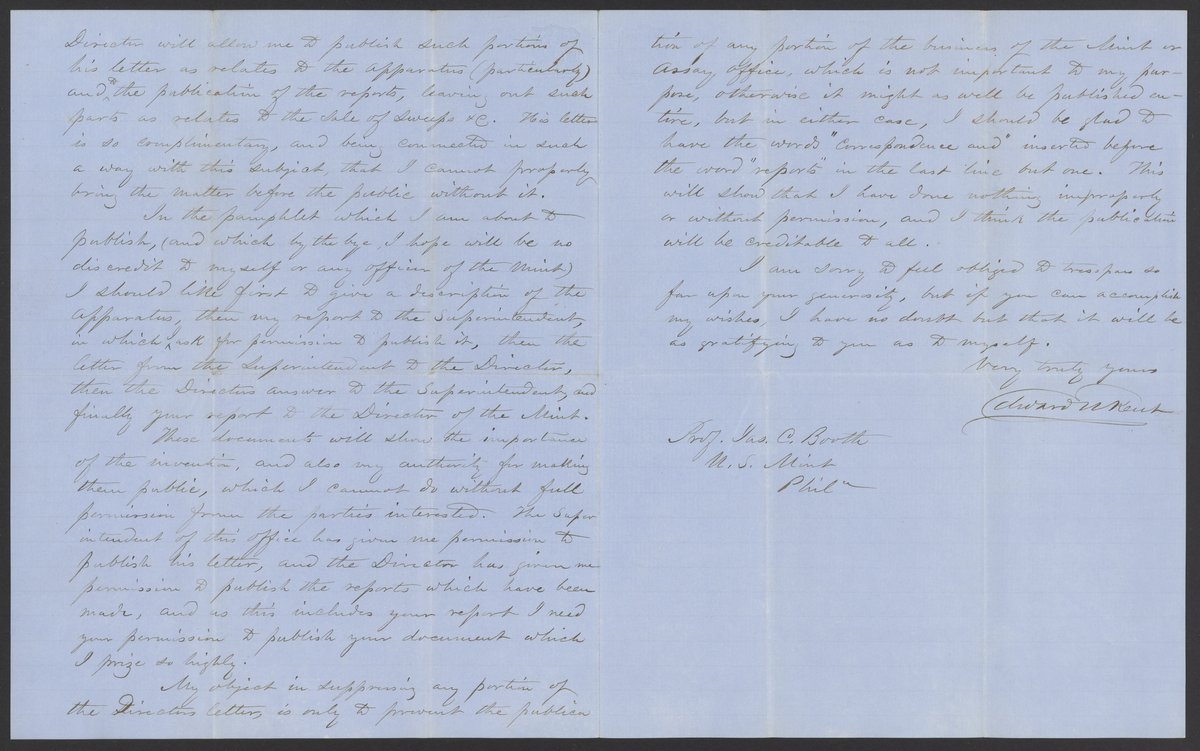 Director will allow me to publish such portions of
his letter as relates to the apparatus (particularly)
and to the publication of the reports, leaving out such
parts as relates to the Sale of Sweeps &c. His letter
is so complimentary, and being connected in such
a way with this subject, that I cannot properly
bring the matter before the public without it.
In the pamphlet which I am about to
publish, (and which by the bye, I hope will be no
discredit to myself or any officer of the Mint)
I should like first to give a description of the
apparatus, then my report to the Superintendent,
in which I ask for permission to publish it, then the
letter from the Superintendent to the Director,
then the Directors answer to the Superintendent, and
finally your report to the Director of the Mint.
These documents will show the importance
of the invention, and also my authority for making
them public, which I cannot do without full
permission from the parties interested. The Super
intendent of this office has given me permission to
publish his letter, and the Director has given me
permission to publish the reports which have been
made, and as this includes your report I need
your permission to publish your document which
I prize so highly.
My object in suppressing any portion of
the Directors letter, is only to prevent the publica
tion of any portion of the business of the Mint or
Assay office, which is not important to my pur-
pose, otherwise it might as well be published en-
tire, but in either case, I should be glad to
have the words "Correspondence and" inserted before
the word "reports" in the last line but one. This
will show that I have done nothing improperly
or without permission, and I think the publication
will be creditable to all.
I am sorry to feel obliged to trespass so
far upon your generosity, but if you can accomplish
my wishes, I have no doubt but that it will be
as gratifying to you as to myself.
Very truly yours
Edward N Kent
Prof. Jas. C. Booth
U. S. Mint
Phila